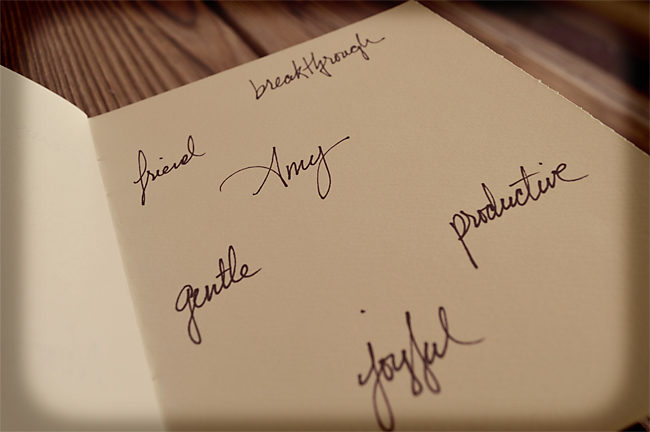 breakthrough
friend
Amy
productive
gentle
joyful